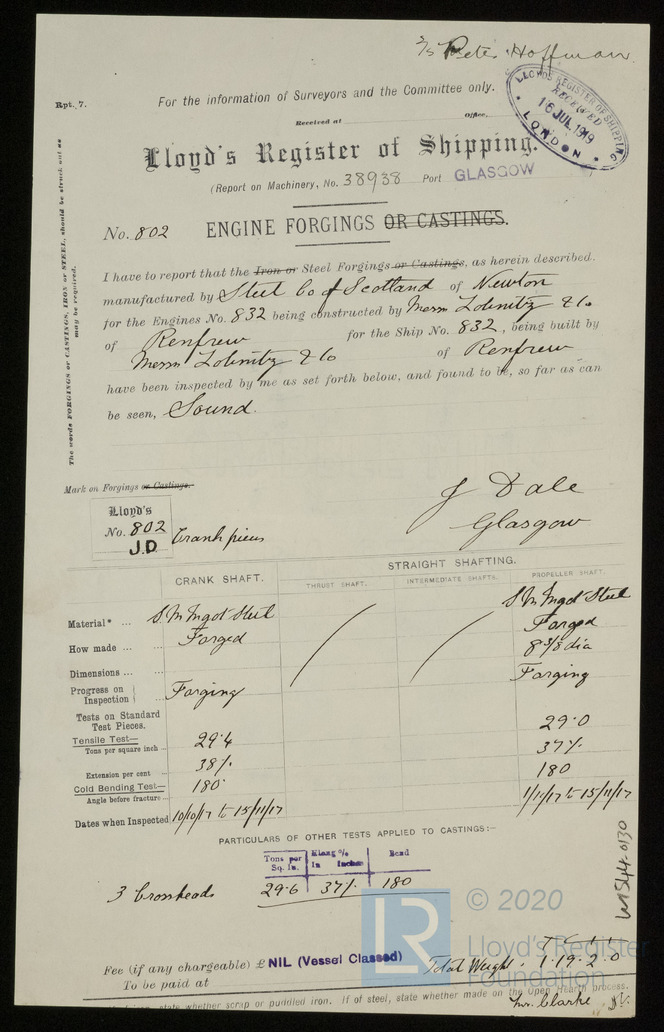 S/S Peter Hoffman.
LLOYD'S REGISTER OF SHIPPING
RECEIVED
16 JUL 1919
LONDON
Rpt. 7.
For the information of Surveyors and the Committee only.
Received at Office,
Lloyd's Register of Shipping.
(Report on Machinery, No. 38938 Port GLASGOW
No. 802 ENGINE FORGINGS OR CASTINGS.
The words FORGINGS or CASTINGS, IRON or STEEL, should be struck out as
may be required.
I have to report that the Iron or Steel Forgings or Castings, as herein described,
manufactured by Steel Co of Scotland of Newton
for the Engines No. 832 being constructed by Messrs Lobnitz & Co
of Renfrew for the Ship No. 832, being built by
Messrs Lobnitz & Co of Renfrew
have been inspected by me as set forth below, and found to be, so far as can
be seen, Sound.
Mark on Forgings or Castings.
Lloyd's
No. 802
J.D
Crank pieces
J Dale
Glasgow
STRAIGHT SHAFTING.
CRANK SHAFT. THRUST SHAFT. INTERMEDIATE SHAFTS. PROPELLER SHAFT.
Material* ... S.M Ingot Steel S.M Ingot Steel
How made ... Forged Forged
Dimensions ... 8 3/8 dia
Progress on Inspection ... Forging Forging
Tests on Standard
Test Pieces.
Tensile Test—
Tons per square inch .. 29.4 29.0
Extension per cent ... 38% 37%
Cold Bending Test—
Angle before fracture ... 180° 180
Dates when Inspected 10/10/17 to 15/11/17 1/11/17 to 15/11/17
PARTICULARS OF OTHER TESTS APPLIED TO CASTINGS:—
Tons per Sq. In. Elong % In Inches Bend
3 Crossheads 29.6 37% 180
W1544-0130
© 2020
Lloyd's Register
Foundation
LR
Fee (if any chargeable) £ NIL (Vessel Classed)
Total Weight. 1.19.2.0
To be paid at
state whether scrap or puddled iron. If of steel, state whether made on the Open Hearth process.
Mr. Clarke